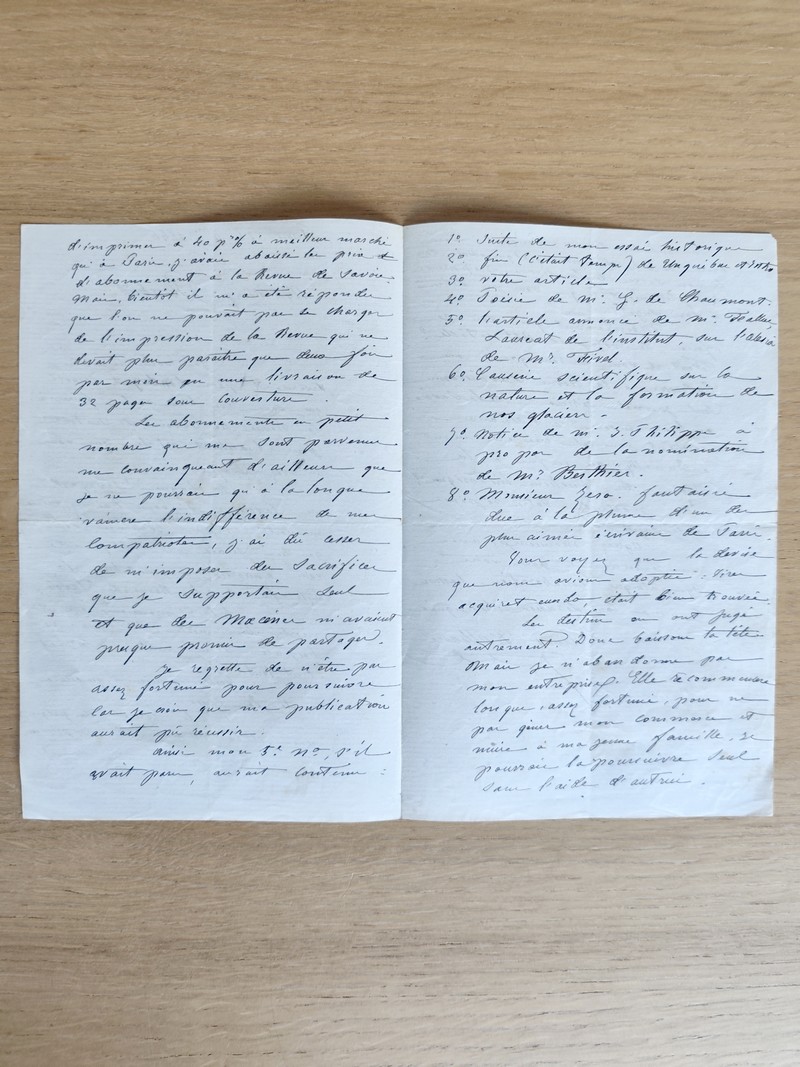 d'imprimer à 40 p % à meilleur marché
qu'à Paris, j'avais abaissé les prix
d'abonnement à la Revue de Savoie.
Mais, bientôt il m'a été répondu
que l'on ne pouvait pas se charger
de l'impression de la Revue qui ne
devait plus paraître que deux fois
par mois en une livraison de
32 pages sous couverture.
Les abonnements en petit
nombre qui me sont parvenus
me convainquant d'ailleurs que
je ne pourrais qu'à la longue
vaincre l'indifférence de mes
compatriotes, j'ai dû cesser
de m'imposer des sacrifices
que je supportais seul
et que des Mécènes m'avaient
presque promis de partager.
Je regrette de n'être pas
assez fortuné pour poursuivre
car je crois que ma publication
aurait pu réussir.
Ainsi mon 5e No, s'il
avait paru, aurait contenu :
1o Suite de mon essai historique
2o fin (c'était temps) de
3o votre article
4o Poésie de Mr. G. de Chaumont.
5o l'article annoncé de Mr.
Lauréat de l'institut, sur
de Mr.
6o Causerie scientifique sur la
nature et la formation de
nos glaciers.
7o Notice de Mr. J. Philippe à
propos de la nomination
de Mr. Berthier.
8o Monsieur Zéro. fantaisie
due à la plume d'un des
plus aimés écrivains de Paris.
Vous voyez que la devise
que nous avions adoptée : Vires
acquiret eundo, était bien trouvée.
Les destins en ont jugé
autrement. Donc baissons la tête.
Mais je n'abandonne pas
mon entreprise. Elle recommencera
lorsque, assez fortuné, pour ne
pas gêner mon commerce et
nuire à ma jeune famille, je
pourrai la poursuivre seul
sans l'aide d'autrui.